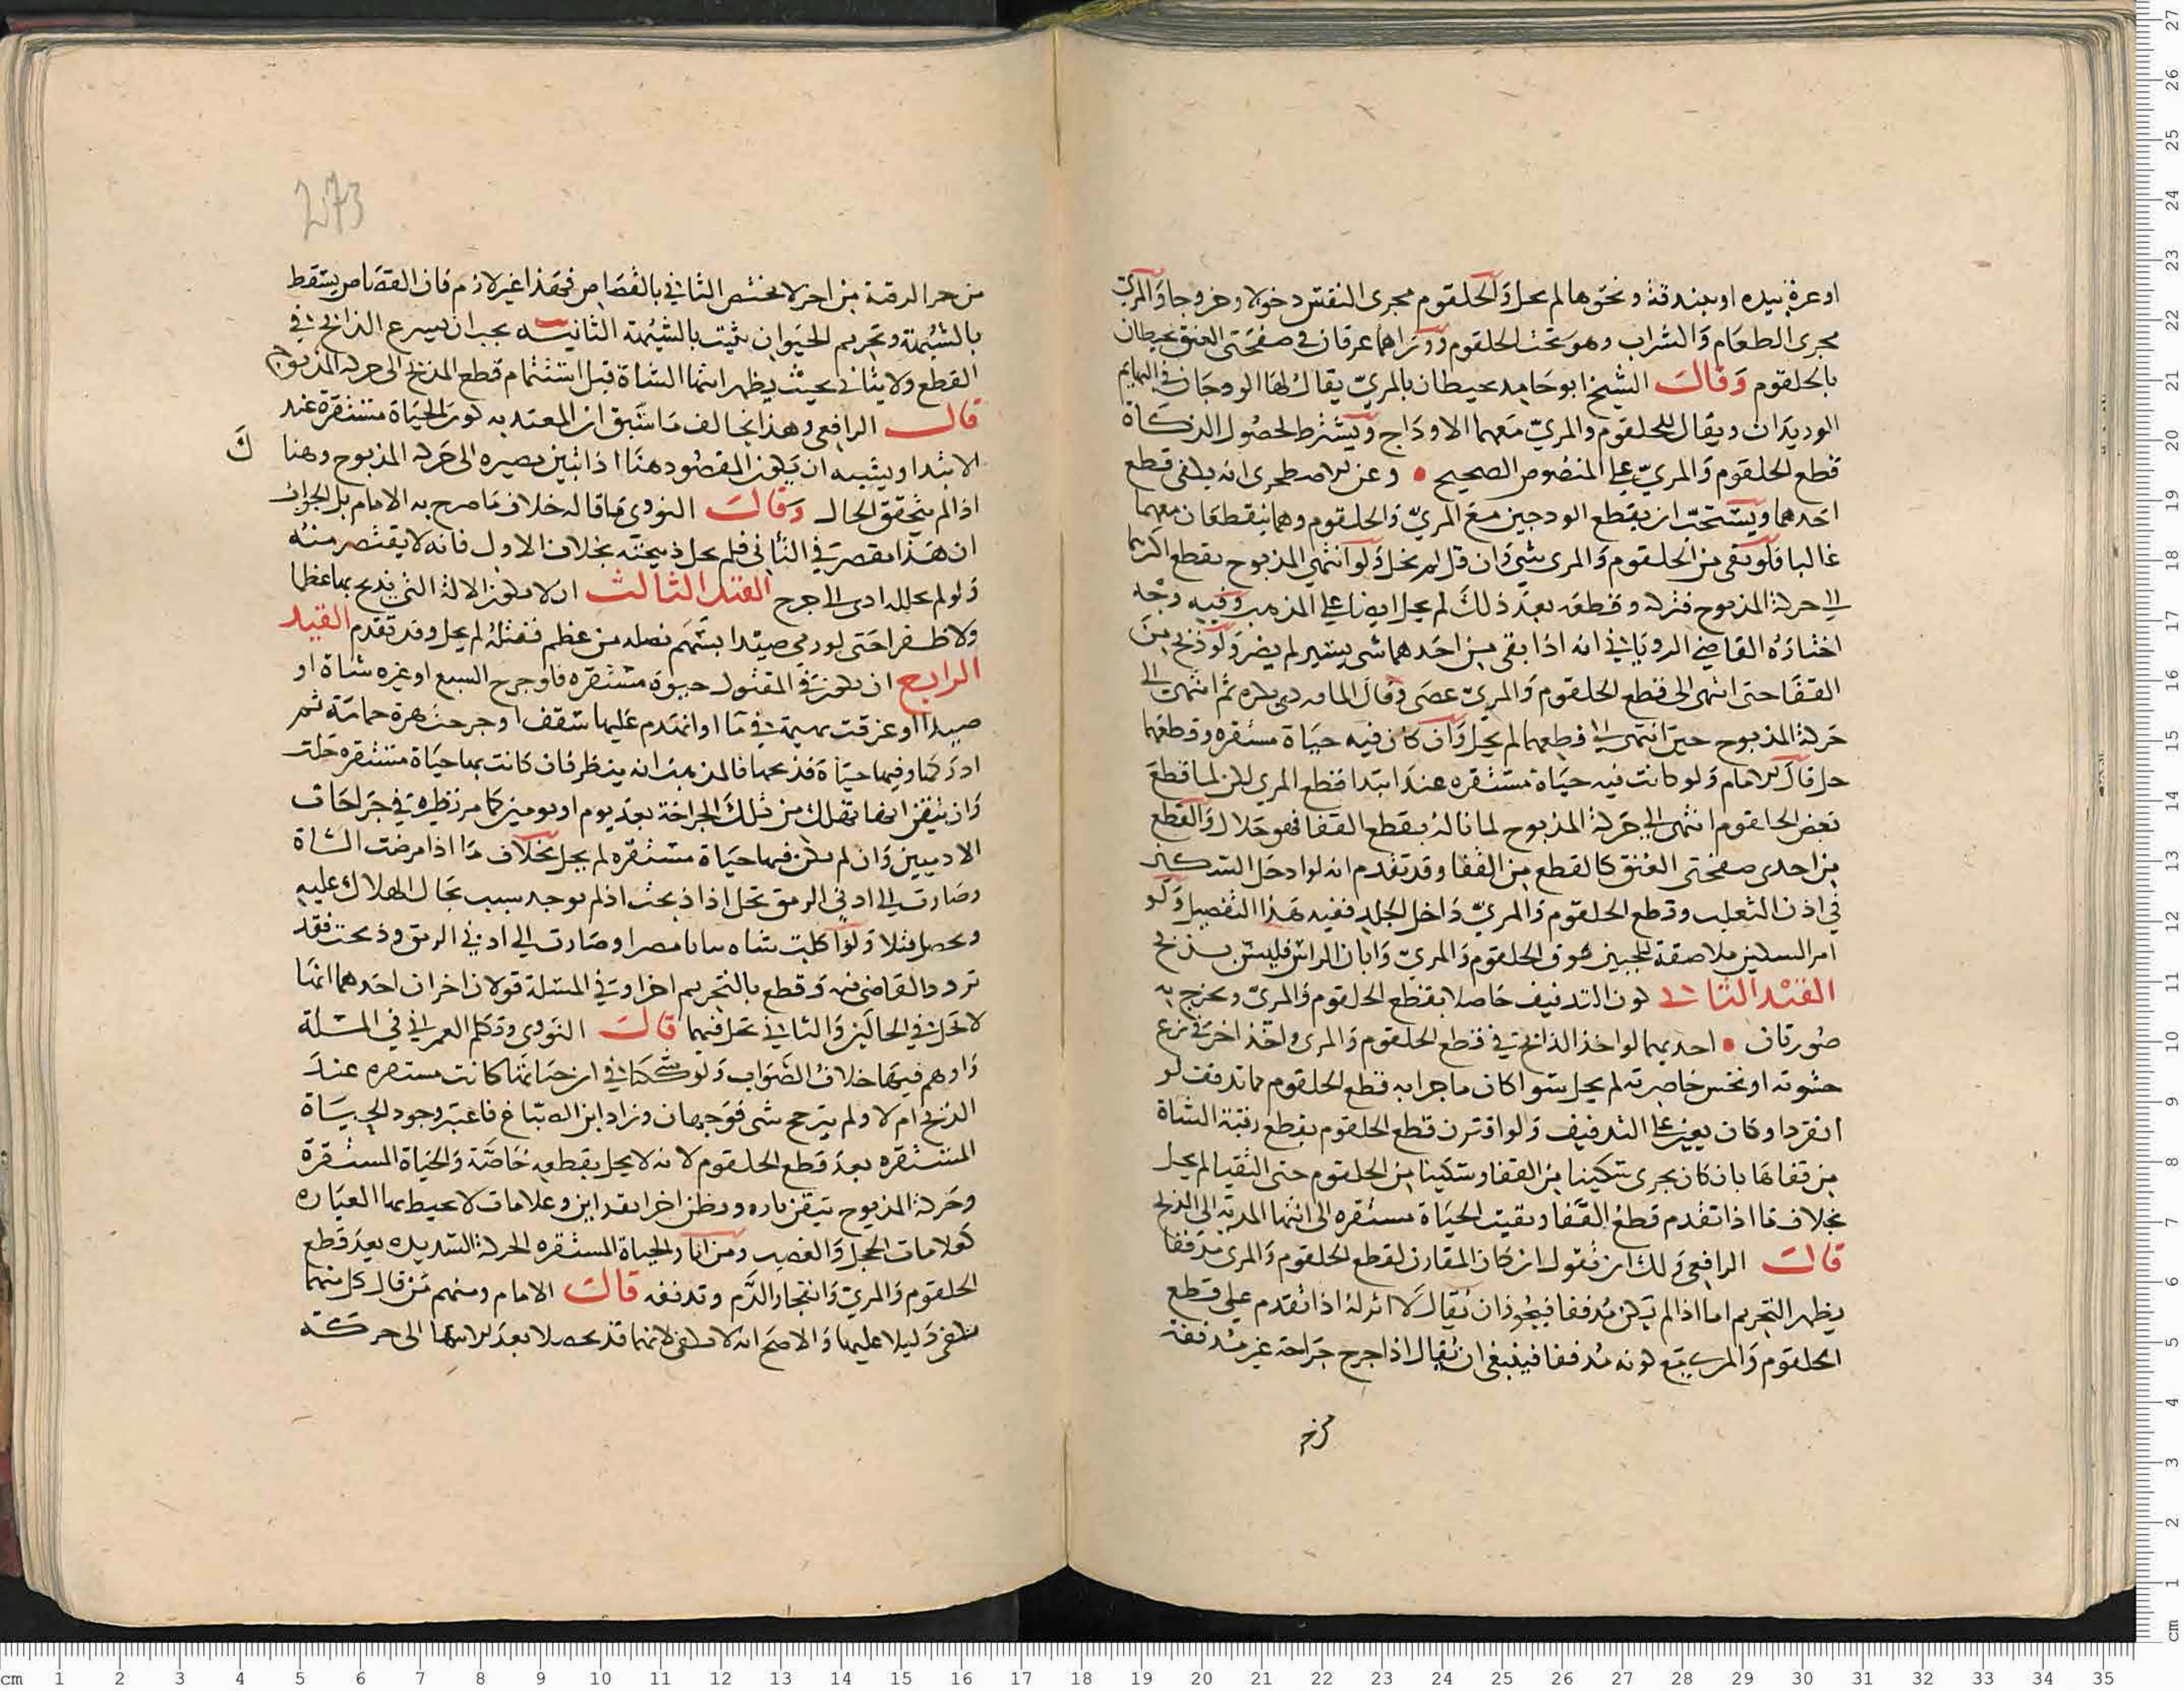 او عره بيده او ببندقة ونحوها لم يحل والحلقوم مجرى النفس دخولا وخروجا والمري
مجرى الطعام والشراب وهو تحت الحلقوم ووراهما عرقان في صفحتي العنق يحيطان
بالحلقوم وقال الشيخ ابو حامد يحيطان بالمري يقال لهما الودجان في البهايم
الوريدان ويقال للحلقوم والمري معهما الاوداج ويشترط لحصول الذكاة
قطع الحلقوم والمري على المنصوص الصحيح وعن الاصطخري انه يكفي قطع
احدهما ويستحب ان يقطع الودجين مع المري والحلقوم وهما ينقطعان معهما
غالبا فلو بقي من الحلقوم والمري شي وان قل لم يحل ولو انتهى المذبوح بقطع اكثرها
الى حركة المذبوح فتركه وقطعه بعد ذلك لم يحل ايضا على المذهب وفيه وجه
اختاره القاضي الروياني انه اذا بقي من احدهما شي يسير لم يضر ولو ذبح من
القفا حتى انتهى الى قطع الحلقوم والمري عصى وقال الماوردي يكره ثم انتهى الى
حركة المذبوح حين انتهى الى قطعهما لم يحل وان كان فيه حياة مستقره وقطعهما
حل قال الامام ولو كانت فيه حياة مستقره عند ابتدا قطع المري لكن لما قطع
بعض الحلقوم انتهى الى حركة المذبوح لما ناله بقطع القفا فهو حلال والقطع
من احدى صفحتي العنق كالقطع من القفا وقد تقدم انه لو ادخل السكين
في اذن الثعلب وقطع الحلقوم والمري داخل الجلد ففيه هذا التفصيل ولو
امر السكين ملاصقة للجبين فوق الحلقوم والمري وابان الراس فليس بذبح
القيد الثاني كون التدفيف حاصلا بقطع الحلقوم والمري ويخرج به
صورتان احديهما لو اخذ الذابح في قطع الحلقوم والمري واخذ اخر في نزع
حشوته او نخس خاصرته لم يحل سوا كان ما جرا به قطع الحلقوم مما تدفف لو
انفرد او كان يعين على التدفيف ولو اقترن قطع الحلقوم بقطع رقبة الشاة
من قفاها بان كان يجري سكينا من القفا وسكينا من الحلقوم حتى التقيا لم يحل
بخلاف ما اذا تقدم قطع القفا وبقيت الحياة مستقره الى انتها المدية الى الذبح
قال الرافعي ولك ان تقول ان كان المقارن لقطع الحلقوم والمري مدففا
يظهر التحريم اما اذا لم يكن مدففا فيجوز ان يقال لا اثر له اذا تقدم على قطع
الحلقوم والمري مع كونه مدففا فينبغي ان يقال اذا جرح جراحة غير مدففة
من حر الرقبة من اخر لا يختص الثاني بالقصاص فهذا غير لازم فان القصاص يسقط
بالشبهة وتحريم الحيوان يثبت بالشبهة الثانيه يجب ان يسرع الذابح في
القطع ولا يتاني بحيث يظهر انتها الشاة قبل استتمام قطع المذبح الى حركة المذبوح
قال الرافعي وهذا يخالف ما سبق ان المعتد به كون الحياة مستقرة عند
الابتدا ويشبه ان يكون المقصود هنا اذا تبين مصيره الى حركة المذبوح وهنا ك
اذا لم يتحقق الحال وقال النووي ما قاله خلاف ما صرح به الامام بل الجواب
ان هذا مقصر في التاني فلم يحل ذبيحته بخلاف الاول فانه لا يقتصر منه
ولو لم يحلل ادى الى حرج القيد الثالث ان لا يكون الالة التي يذبح بها عظما
ولا ظفرا حتى لو رمي صيدا بسهم نصله من عظم فقتله لم يحل وقد تقدم القيد
الرابع ان يكون في المقتول حيوة مستقره فلو جرح السبع او غيره شاة او
صيدا او غرقت بهيمة في ما او انهدم عليها سقف او جرحت هرة حمامة ثم
ادركها وفيها حياة فذبحها فالمذهب انه ينظر فان كانت بها حياة مستقره حلت
وان تيقن انها تهلك من تلك الجراحة بعد يوم او يومين كما مر نظيره في جراحات
الادميين وان لم يكن فيها حياة مستقره لم يحل بخلاف ما اذا مرضت الشاة
وصارت الى ادنى الرمق تحل اذا ذبحت اذ لم يوجد سبب يحال الهلاك عليه
ويحصل قتلا ولو اكلت شاه نباتا مضرا وصارت الى ادنى الرمق وذبحت فقد
تردد القاضي فيه وقطع بالتحريم اخرا وفي المسلة قولان اخران احدهما انها
لا تحل في الحالين والثاني تحل فيهما قال النووي وتكلم العمراني في المسلة
واوهم فيها خلاف الصواب ولو شككنا في ان حياتها كانت مستقره عند
الذبح ام لا ولم يترجح شي فوجهان وزاد ابن الصباغ فاعتبر وجود الحياة
المستقره بعد قطع الحلقوم لانه لا يحل بقطعه خاصة والحياة المستقرة
وحركة المذبوح تتيقن تاره ويظن اخرا بقراين وعلامات لا تحيط بها العباره
كعلامات الخجل والغضب ومن امارا الحياة المستقره الحركة الشديده بعد قطع
الحلقوم والمري وانفجار الدم وتدفقه قال الامام ومنهم من قال كل منهما
يكفي دليلا عليها والاصح انه لا يكفي لانهما قد يحصلا بعد الانتها الى حركة